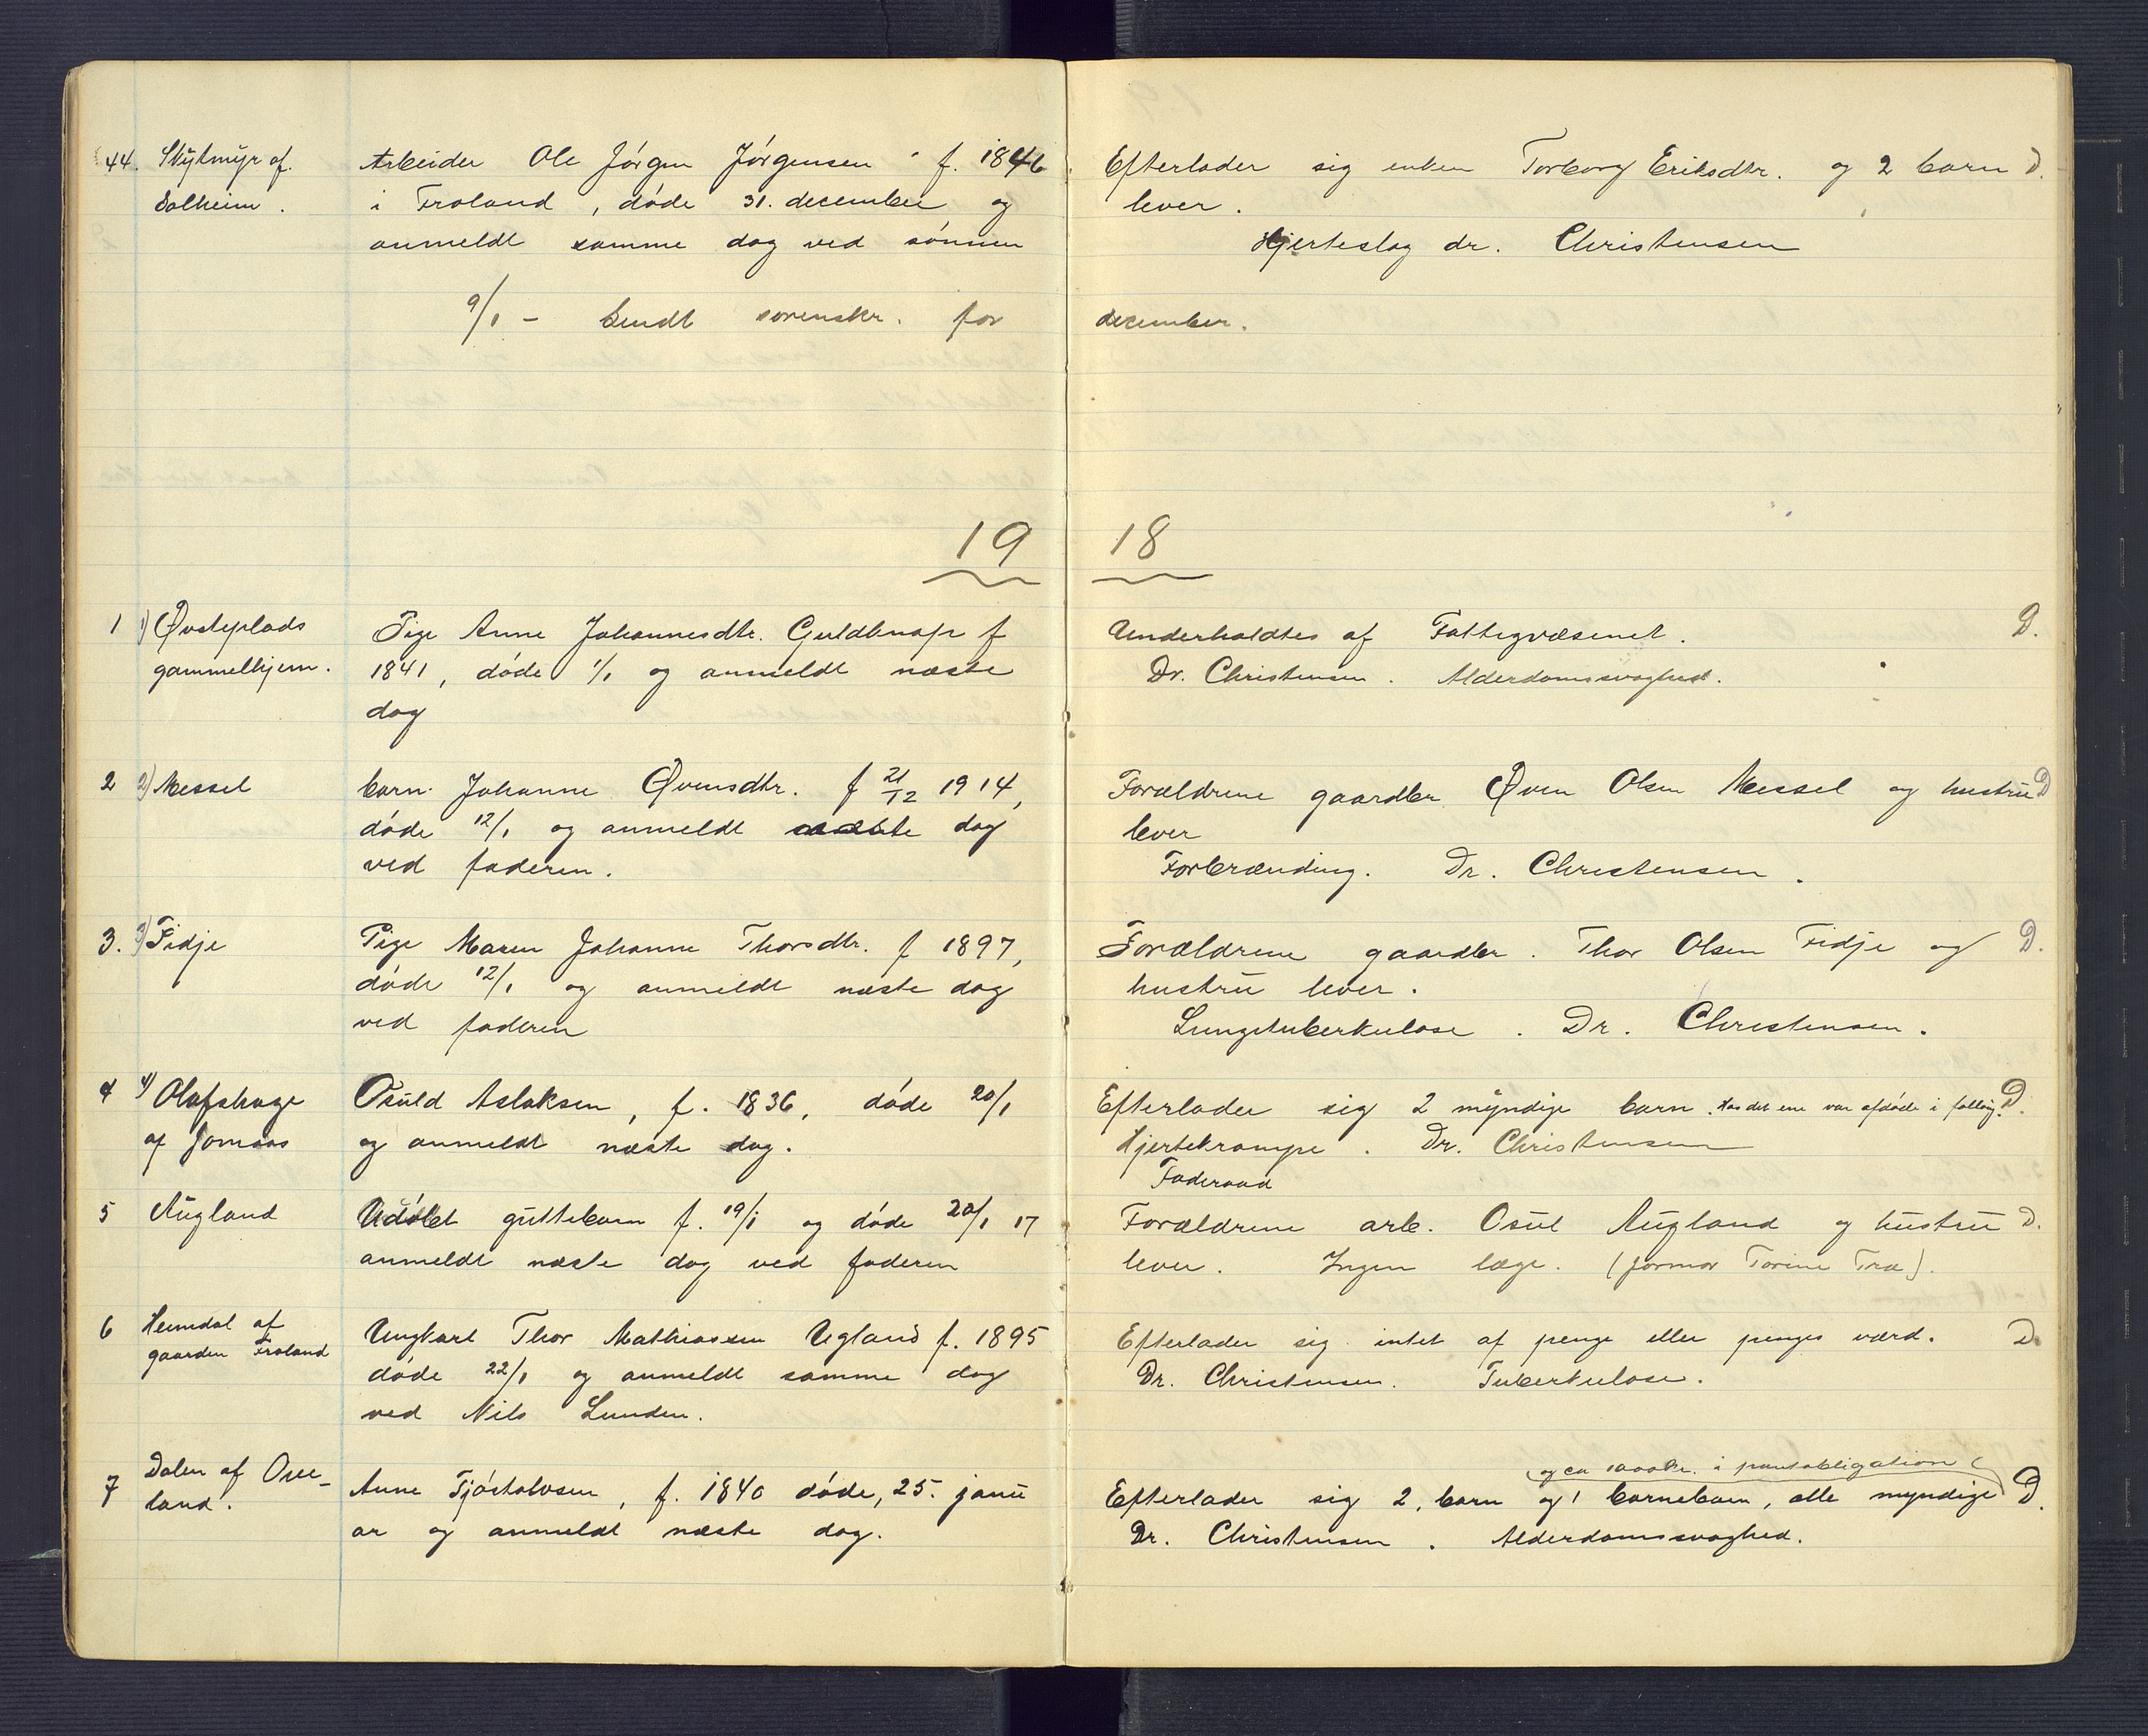 44. Skytmyr af. Arbeider Ole Jørgen Jørgensen f. 1846 Efterlader sig enken Torborg Eriksdtr. og 2 barn D.
Solheim. i Froland, døde 31. december og lever.
anmeldt samme dag ved sønnen Hjerteslag dr. Christensen
9/1 – Sendt sorenskr. for december.
19 18
1 1) Østeplads Pige Anne Johannesdtr. Guldknap f Underholdtes af Fattigvæsenet. D.
gammelhjem. 1841, døde 1/1 og anmeldt næste Dr. Christensen. Alderdomssvaghed.
dag
2 2) Messel barn Johanne Øvensdtr. f 21/12 1914, Forældrene gaardbr. Øven Olsen Messel og hustru D
døde 12/1 og anmeldt dag lever
ved faderen. Forbrænding. Dr. Christensen.
3. 3) Fidje Pige Maren Johanne Thorsdtr. f 1897, Forældrene gaardbr. Thor Olsen Fidje og D.
døde 12/1 og anmeldt næste dag hustru lever.
ved faderen Lungetuberkulose. Dr. Christensen.
4 4) Olafshage Osuld Aslaksen, f. 1836, døde 20/1 Efterlader sig 2 myndige barn. Hos det ene var afdøde i følge. D.
af Jomaas og anmeldt næste dag. Hjertekrampe. Dr. Christensen
Føderaad
5 Augland Udøbt guttebarn f. 19/1 og døde 20/1 17 Forældrene arb. Osul Augland og hustru D.
anmeldt næste dag ved faderen lever. Ingen læge. (Jormor Torine Træ).
6 Heimdal af Ungkarl Thor Mathiassen Ugland f. 1895 Efterlader sig intet af penge eller penges værd. D.
gaarden Froland døde 22/1 og anmeldt samme dag Dr. Christensen. Tuberkulose.
ved Nils Lunden.
og ca 1000 kr. i pantobligation
7 Dalen af Ose- Anne Tjøstolvsen, f. 1840 døde, 25. janu Efterlader sig 2, barn og 1 barnebarn, alle myndige D.
land. ar og anmeldt næste dag. Dr. Christensen. Alderdomssvaghed.